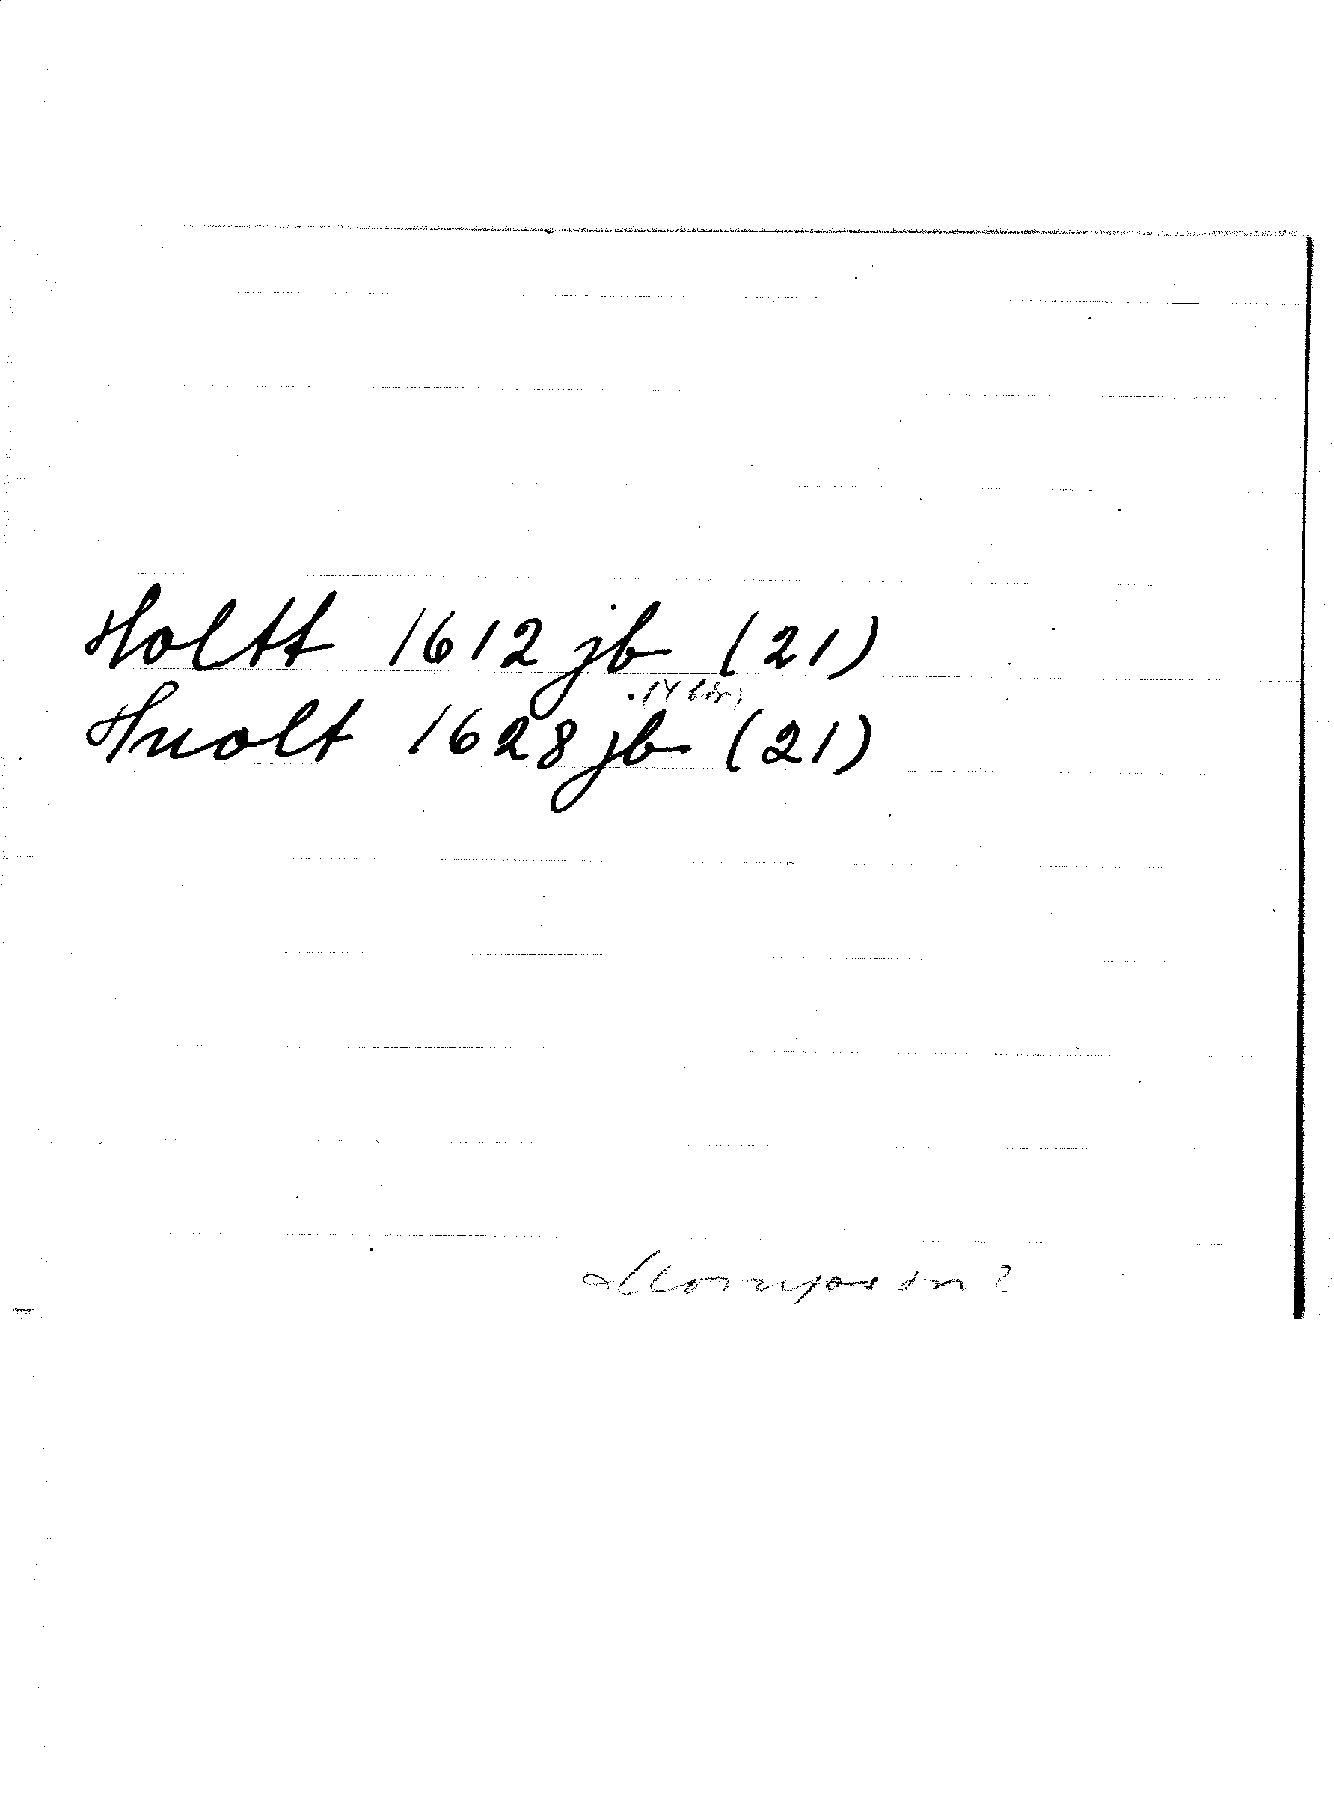 Holtt 1612 jb (21)
Huolt 1628 jb (21)